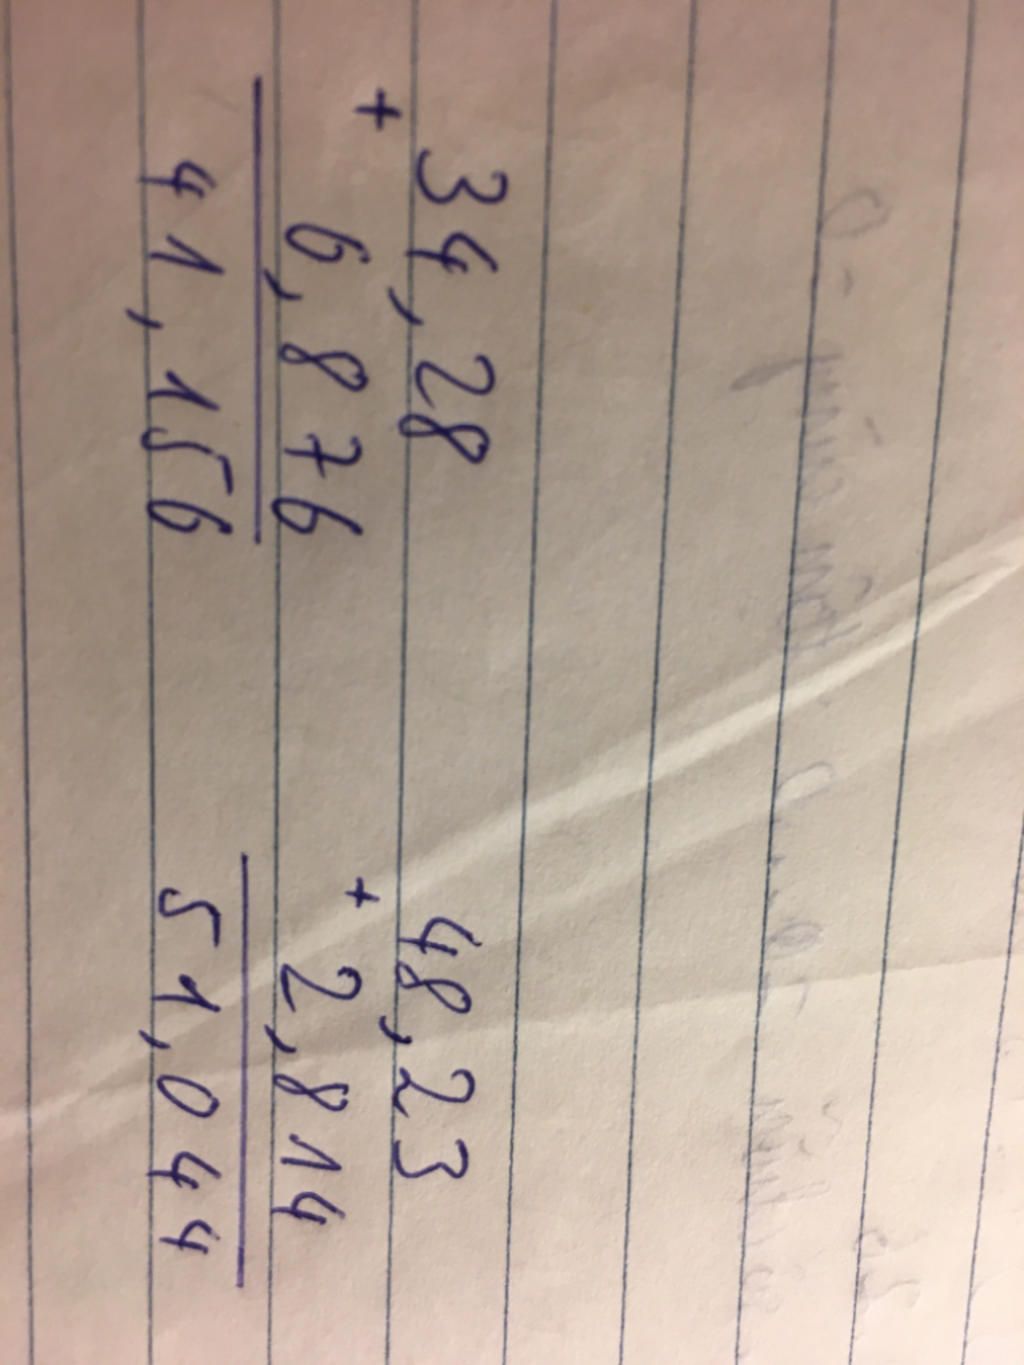 34,28
+ 6,876
41,156
48,23
+ 2,814
51,044